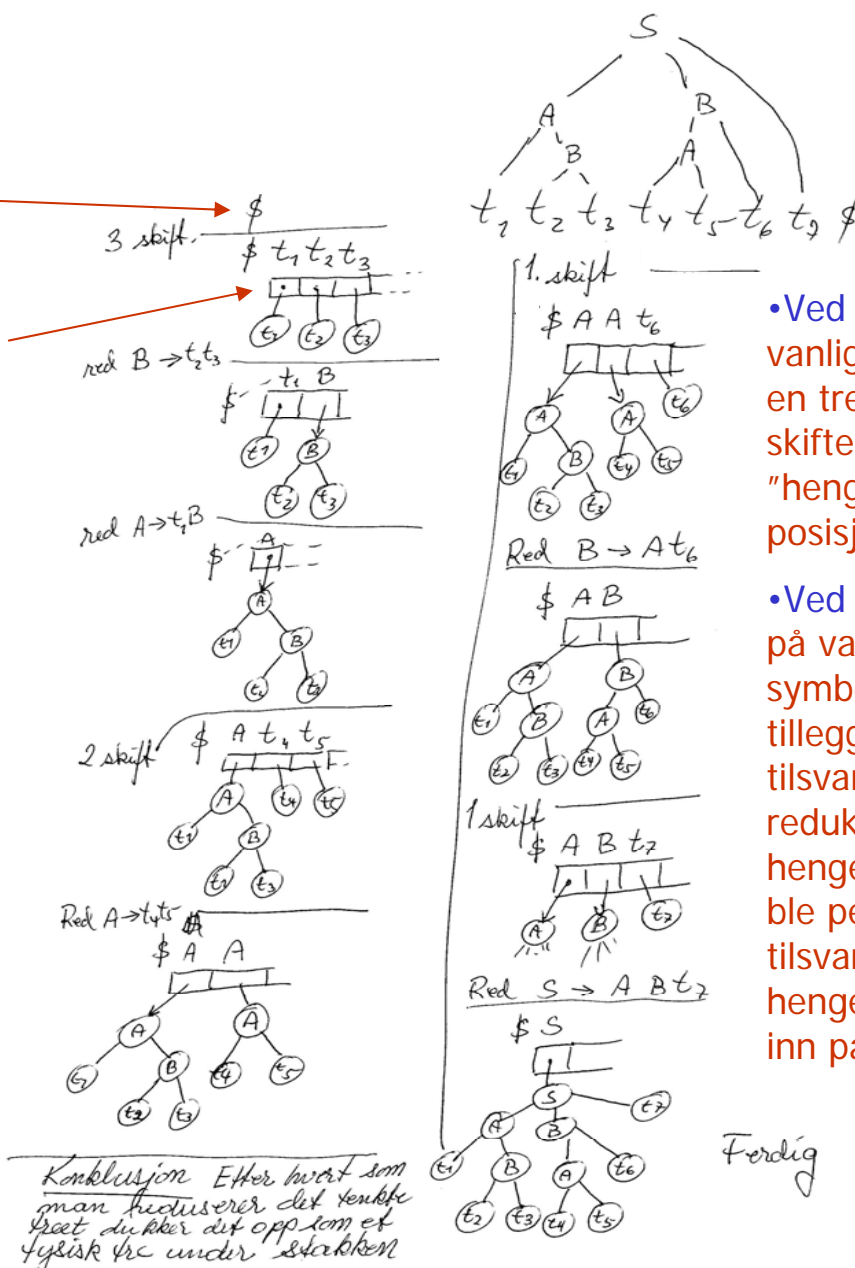 S
A B
B A
t1 t2 t3 t4 t5 t6 t7 $
$
3 skift.
$ t1 t2 t3
t1 t2 t3
red B → t2t3
$ t1 B
t1 B
t2 t3
red A → t1B
$ A
A
t1 B
t2
2 skift
$ A t4 t5
A t4 t5
t1 B
t3
Red A → t4t5
$ A A
A A
t1 B t4 t5
t2 t3
Konklusjon Etter hvert som
man reduserer det tenkte
treet dukker det opp som et
fysisk tre under stakken
1. skift
$ A A t6
A A t6
t1 B t4 t5
t2 t3
Red B → At6
$ A B
A B
t1 B A t6
t2 t3 t4 t5
1 skift
$ A B t7
A B t7
Red S → A B t7
$ S
S
A B t7
t1 B A t6
t2 t3 t4 t5
Ferdig
•Ved
vanlig
en tre
skifte
"heng
posisj
•Ved
på va
symb
tillegg
tilsvar
reduk
henge
ble pe
tilsvar
henge
inn på